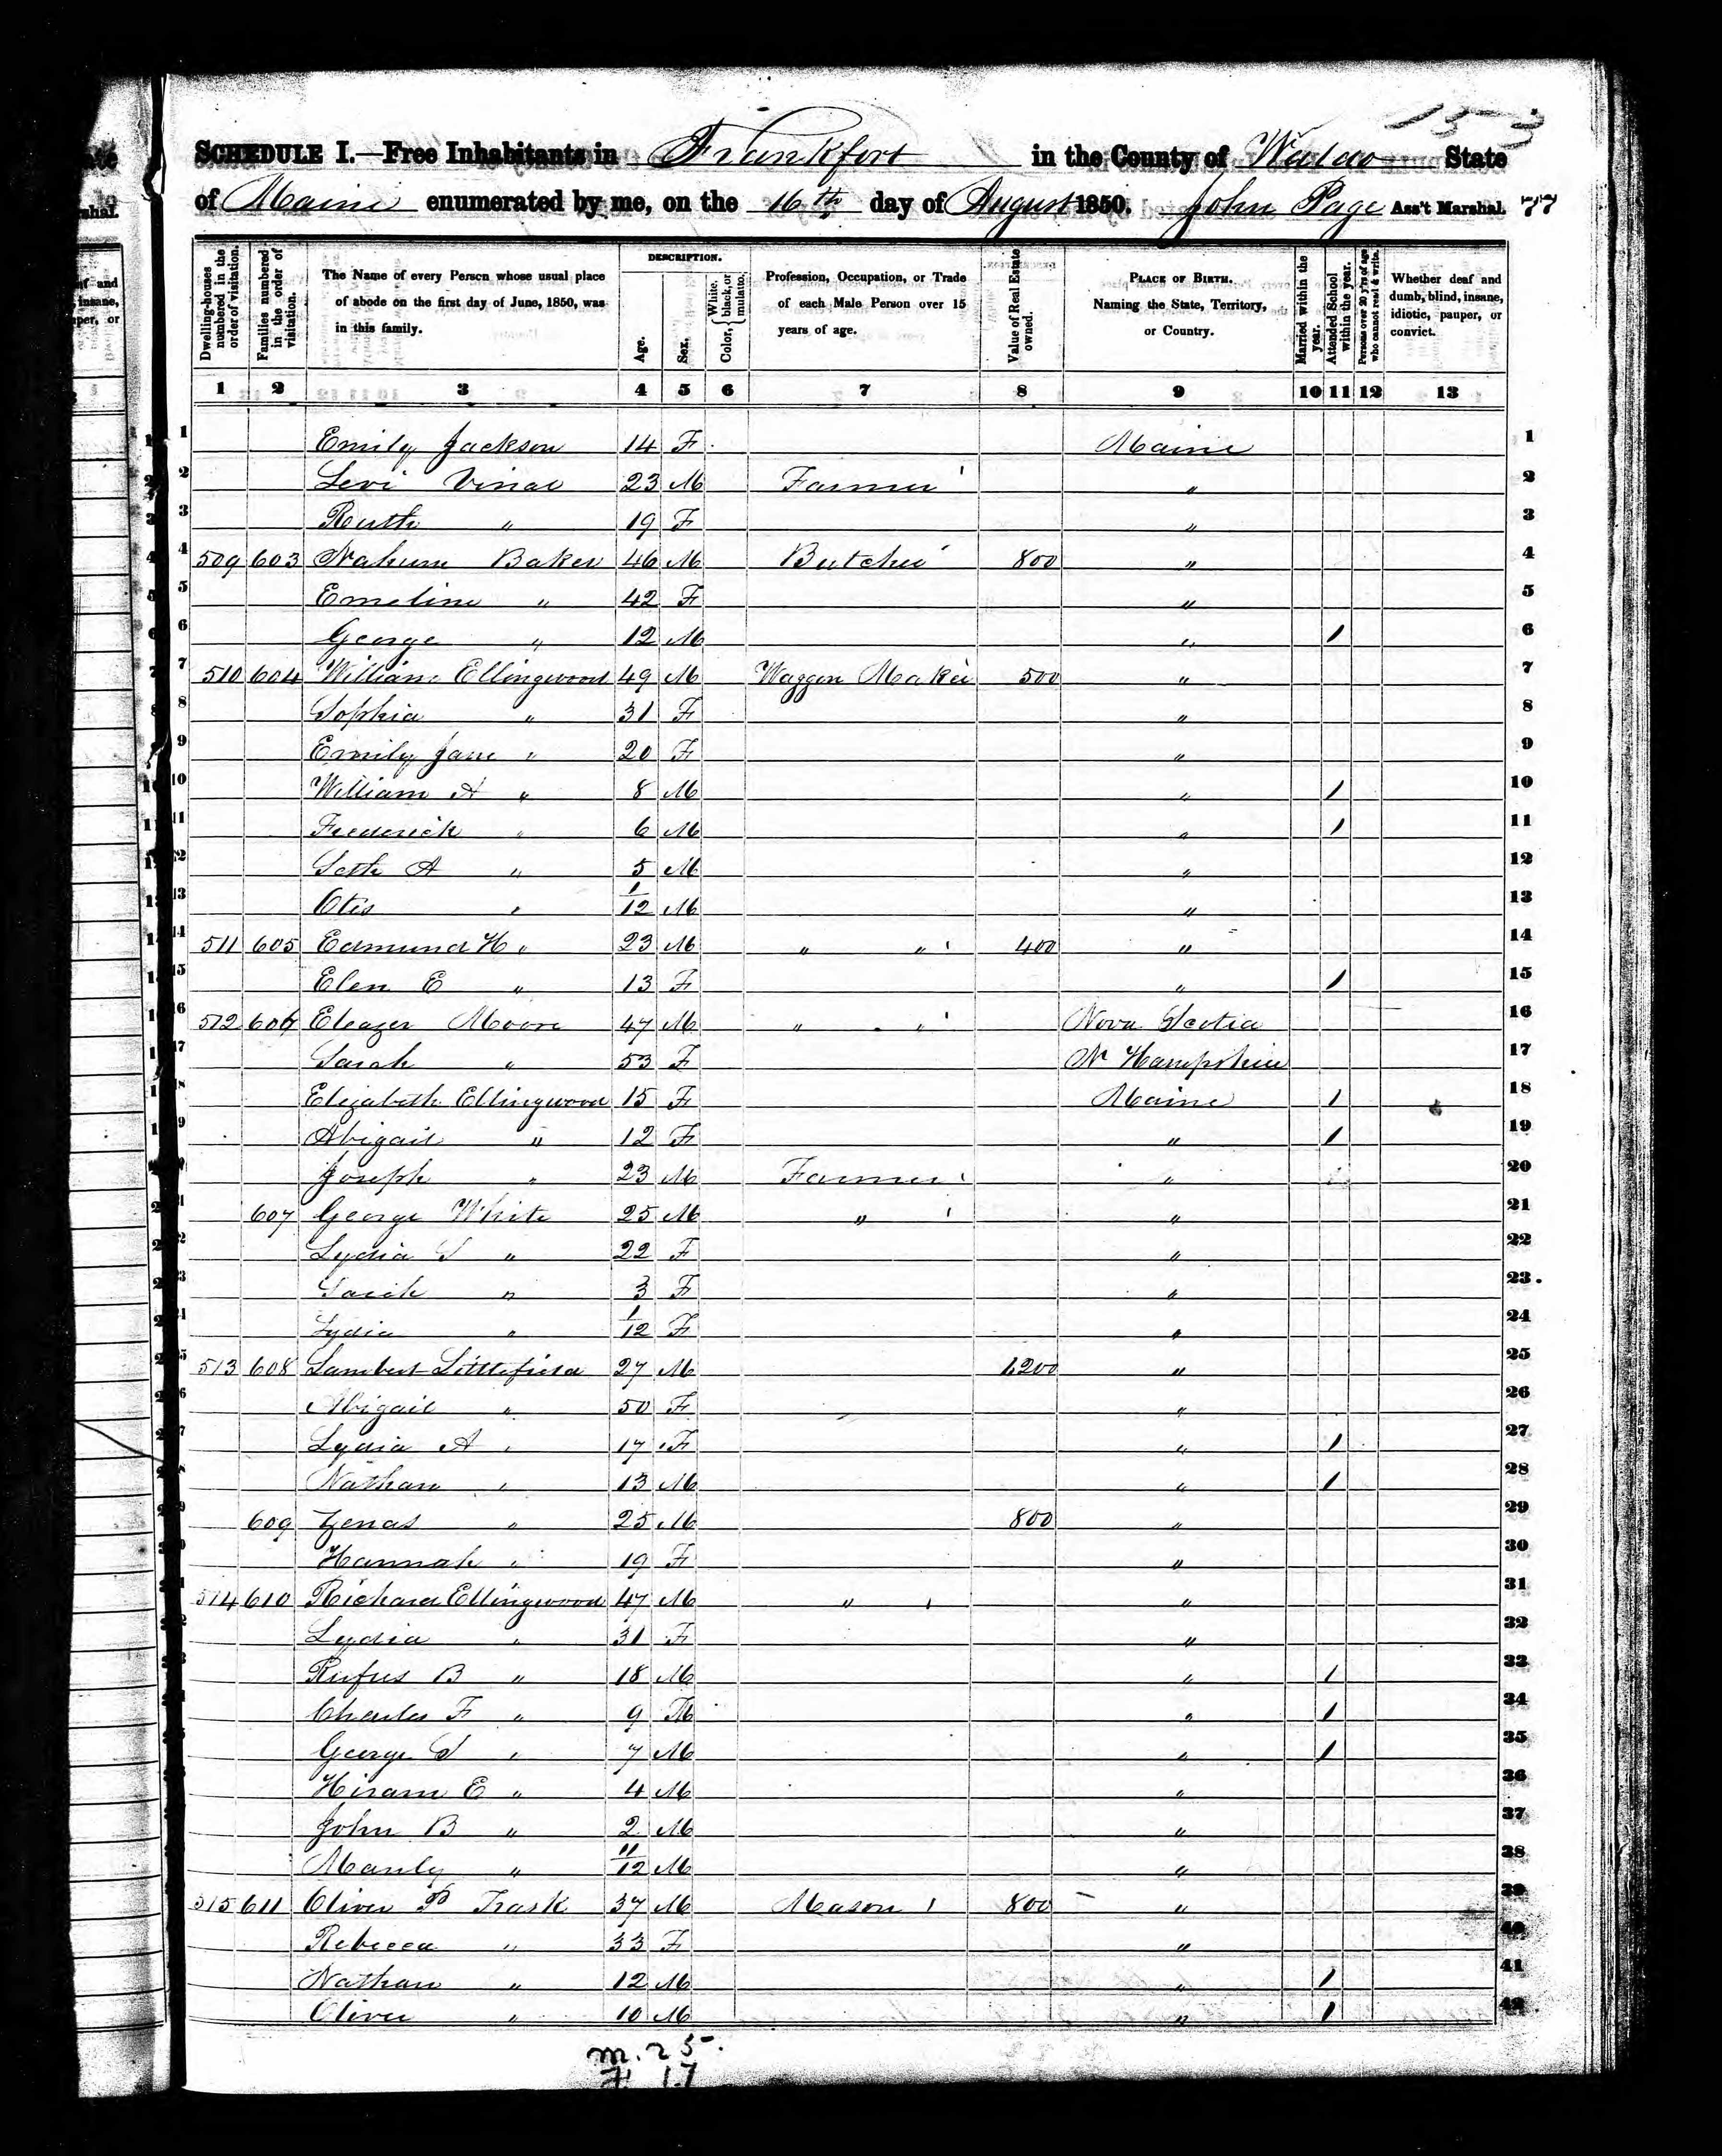 153
SCHEDULE I.—Free Inhabitants in Frankfort in the County of Waldo State
of Maine enumerated by me, on the 16th day of August 1850. John Page Ass't Marshal. 77
Dwelling-houses numbered in the order of visitation. Families numbered in the order of visitation. The Name of every Person whose usual place of abode on the first day of June, 1850, was in this family. DESCRIPTION. Age. Sex. Color, { White, black, or mulatto. Profession, Occupation, or Trade of each Male Person over 15 years of age. Value of Real Estate owned. PLACE OF BIRTH. Naming the State, Territory, or Country. Married within the year. Attended School within the year. Persons over 20 y'rs of age who cannot read & write. Whether deaf and dumb, blind, insane, idiotic, pauper, or convict.
1 2 3 4 5 6 7 8 9 10 11 12 13
1 Emily Jackson 14 F Maine 1
2 Levi Vinal 23 M Farmer " 2
3 Ruth " 19 F " 3
4 509 603 Nahum Baker 46 M Butcher 800 " 4
5 Emeline " 42 F " 5
6 George " 12 M " / 6
7 510 604 William Ellingwood 49 M Waggon Maker 500 " 7
8 Sophia " 31 F " 8
9 Emily Jane " 20 F " 9
10 William A " 8 M " / 10
11 Frederick " 6 M " / 11
12 Seth A " 5 M " 12
13 Otis " 1/12 M " 13
14 511 605 Edmund H " 23 M " " 400 " 14
15 Elen E " 13 F " / 15
16 512 606 Eleazer Moore 47 M " " Nova Scotia 16
17 Sarah " 53 F N Hampshire 17
18 Elizabeth Ellingwood 15 F Maine / 18
19 Abigail " 12 F " / 19
20 Joseph " 23 M Farmer " 20
21 607 George White 25 M " " 21
22 Lydia S " 22 F " 22
23 Sarah " 3 F " 23
24 Lydia " 1/12 F " 24
25 513 608 Lambert Littlefield 27 M 1,200 " 25
26 Abigail " 50 F " 26
27 Lydia A " 17 F " / 27
28 Nathan " 13 M " / 28
29 609 Zenas " 25 M 800 " 29
30 Hannah " 19 F " 30
514 610 Richard Ellingwood 47 M " " 31
Lydia " 31 F " 32
Rufus B " 18 M " / 33
Charles F " 9 M " / 34
George S " 7 M " / 35
Hiram E " 4 M " 36
John B " 2 M " 37
Manly " 11/12 M " 38
515 611 Oliver P Trask 37 M Mason 800 " 39
Rebecca " 33 F " 40
Nathan " 12 M " / 41
Oliver " 10 M " / 42
m. 25.
F 17